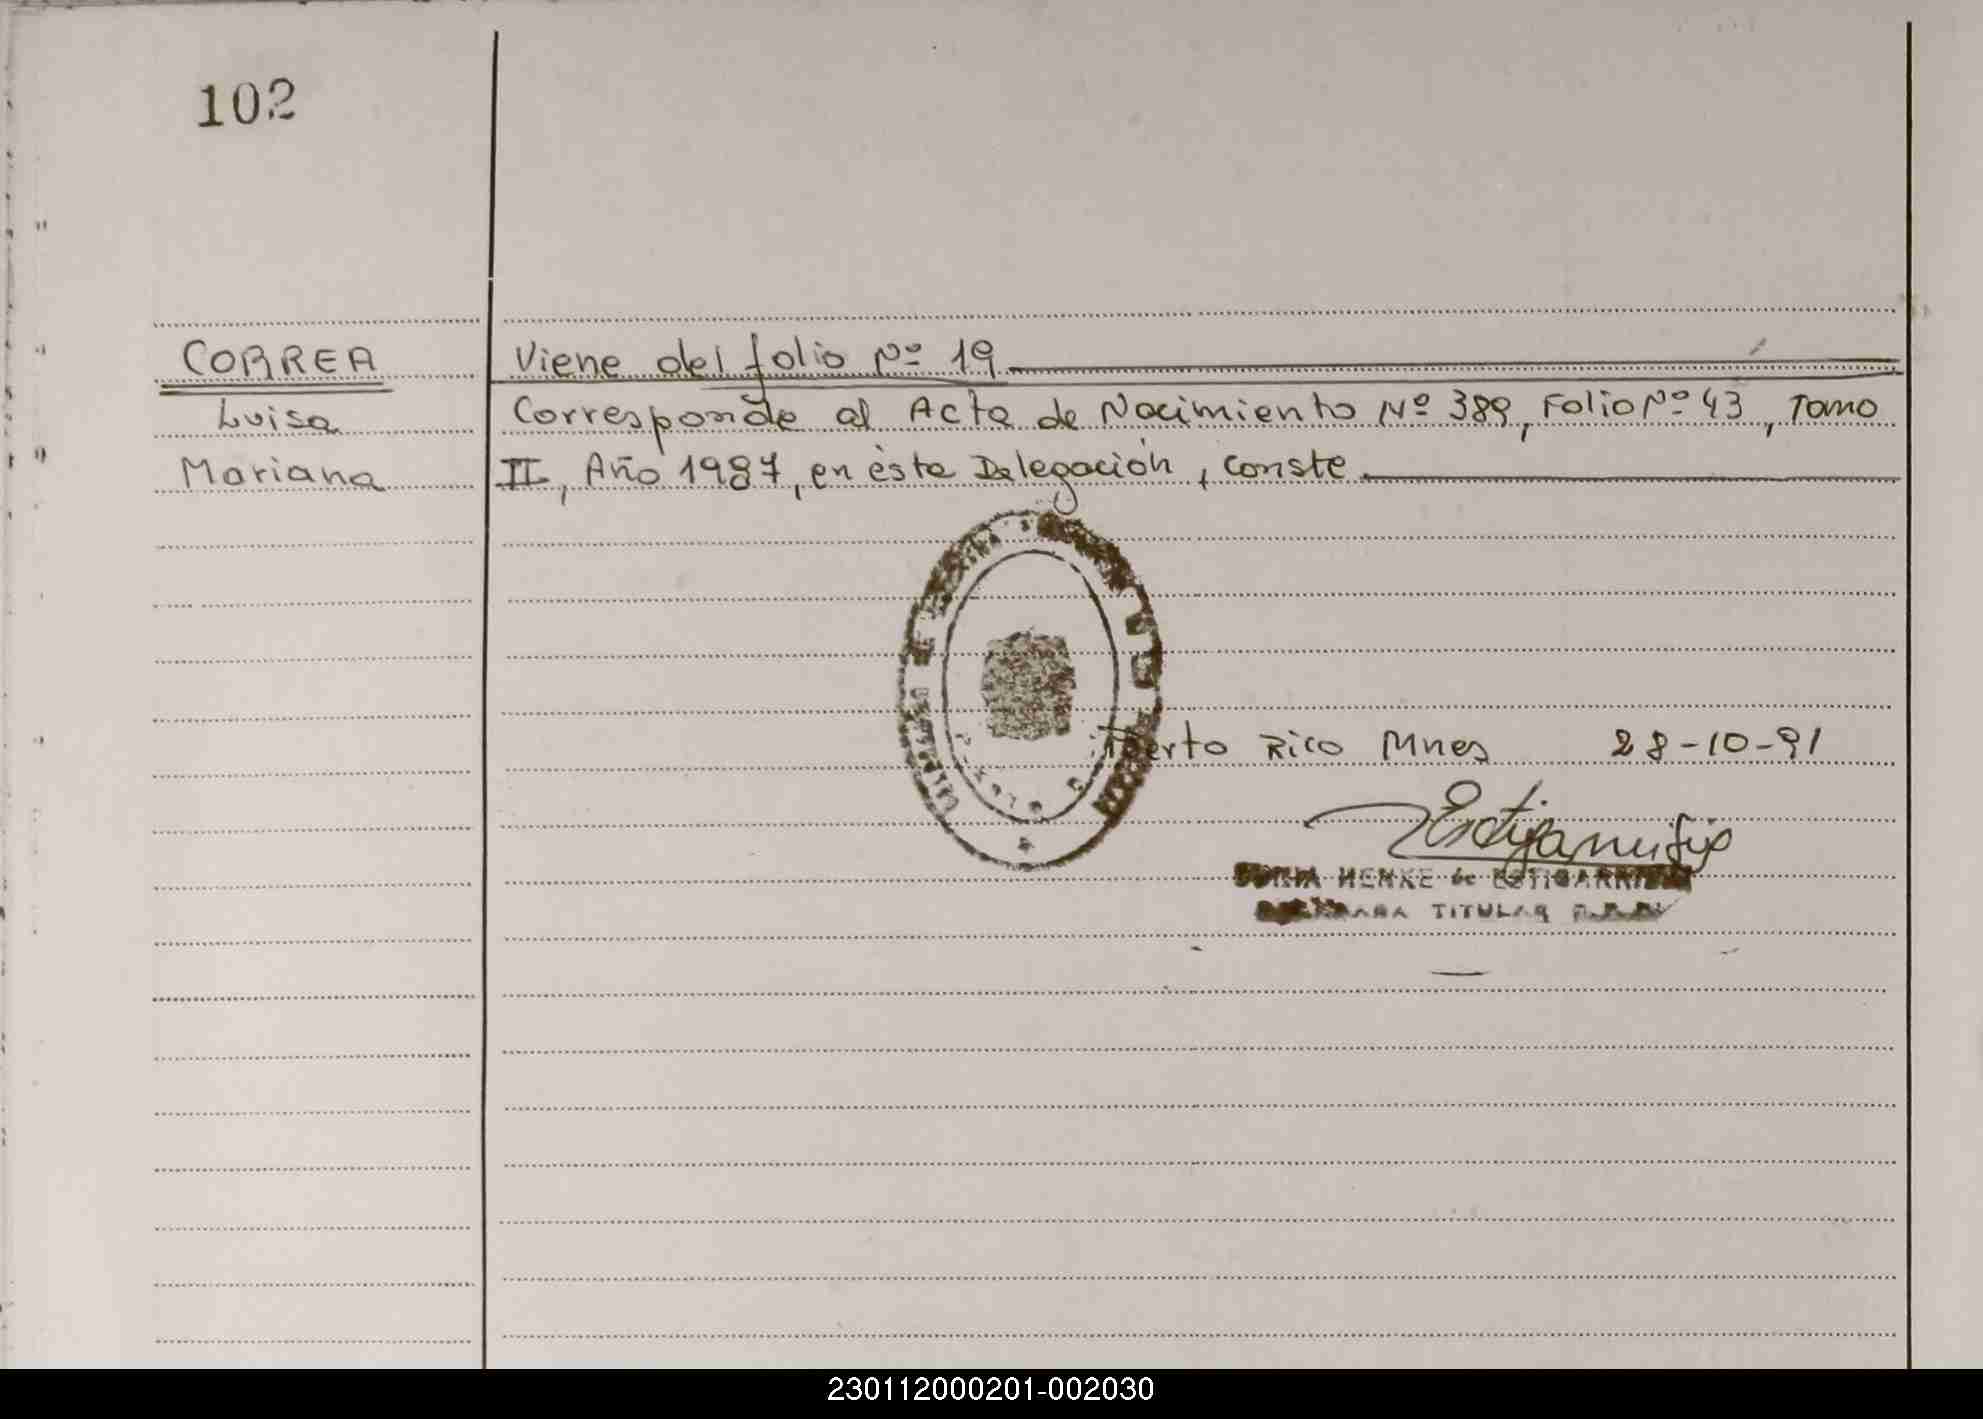 102
CORREA
Luisa
Mariana
Viene del folio Nº 19
Corresponde al Acta de Nacimiento Nº 389, Folio Nº 43, Tomo
II, Año 1987, en ésta Delegación, conste
Puerto Rico Mnes 28-10-91
HENKE de ESTIGARRIBIA
TITULAR
230112000201-002030